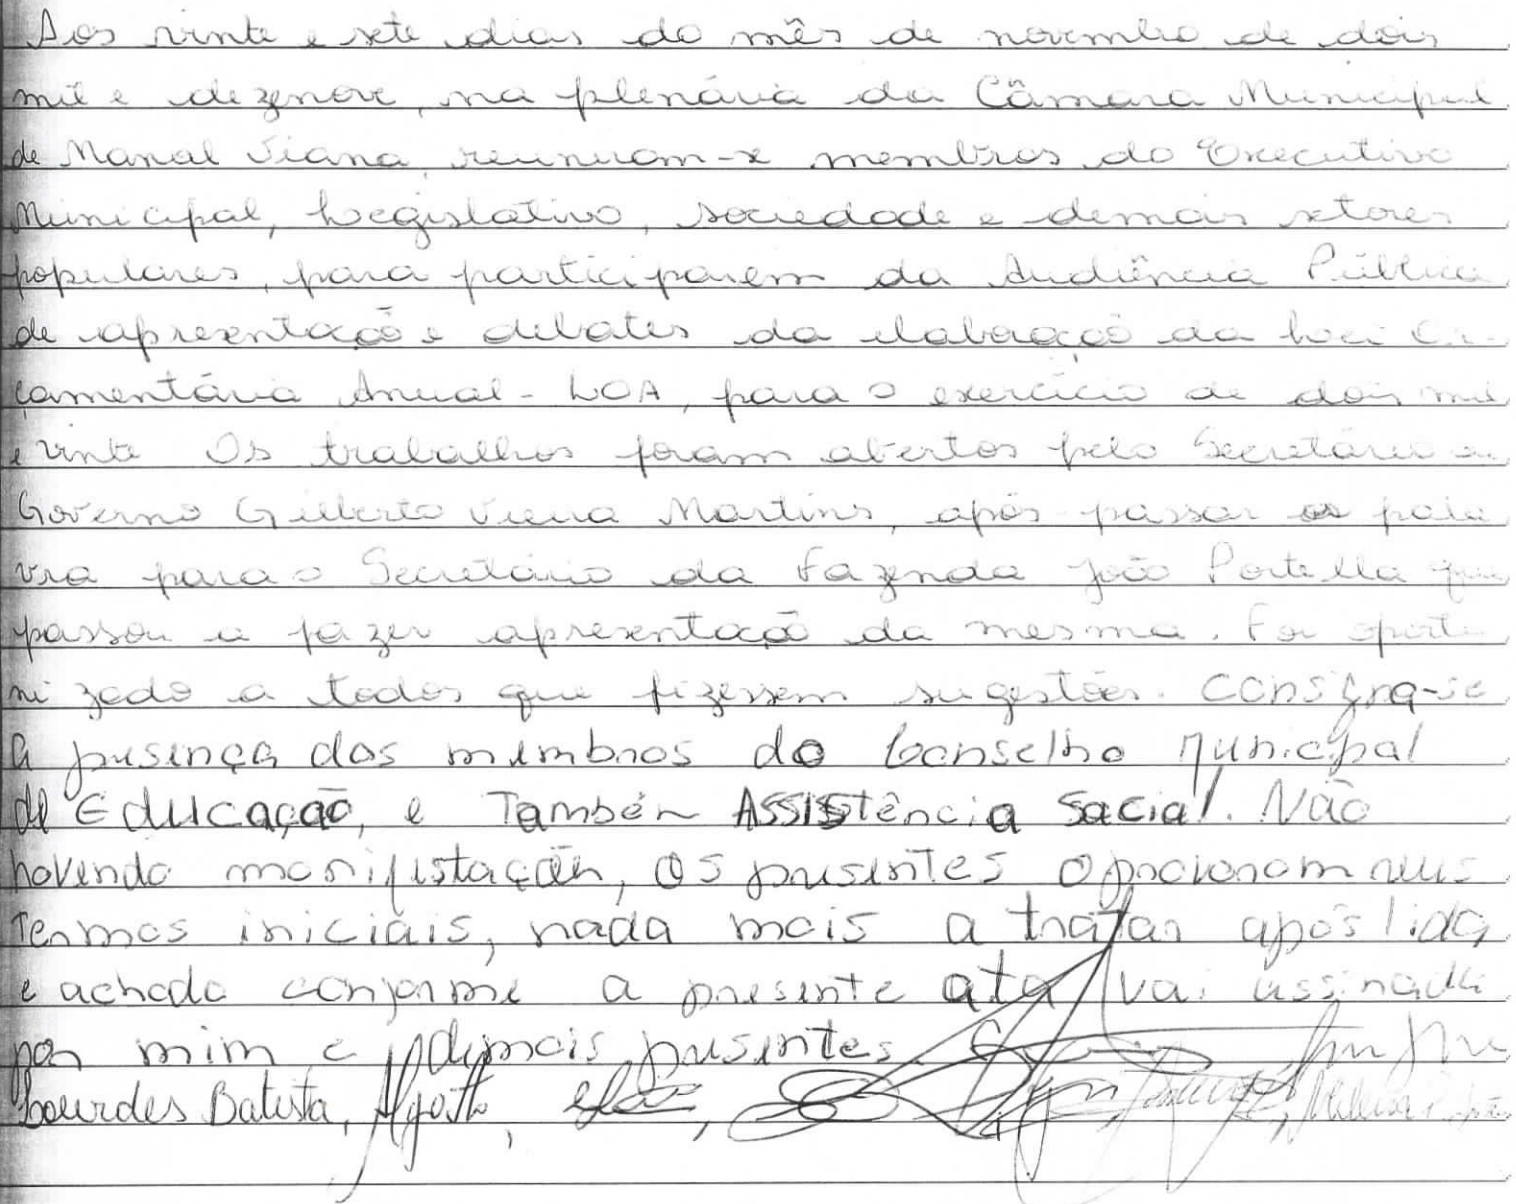 Aos vinte e sete dias do mês de novembro de dois
mil e dezenove, na plenária da Câmara Municipal
de Manoel Viana, reuniram-se membros do Executivo
Municipal, Legislativo, sociedade e demais setores
populares, para participarem da Audiência Pública
de apresentação e debates da elaboração da Lei Or-
çamentária Anual - LOA, para o exercício de dois mil
e vinte Os trabalhos foram abertos pelo Secretário de
Governo Gilberto Vieira Martins, após passar a pala
vra para o Secretário da Fazenda João Portella que
passou a fazer apresentação da mesma. Foi oportu
nizado a todos que fizessem sugestões. Consigna-se
a presença dos membros do Conselho Municipal
de Educação, e Também Assistência Social. Não
havendo manifestação, os presentes aprovaram seus
Termos iniciais, nada mais a tratar após lida
e achada conforme a presente ata vai assinada
por mim e demais presentes
Lourdes Batista,